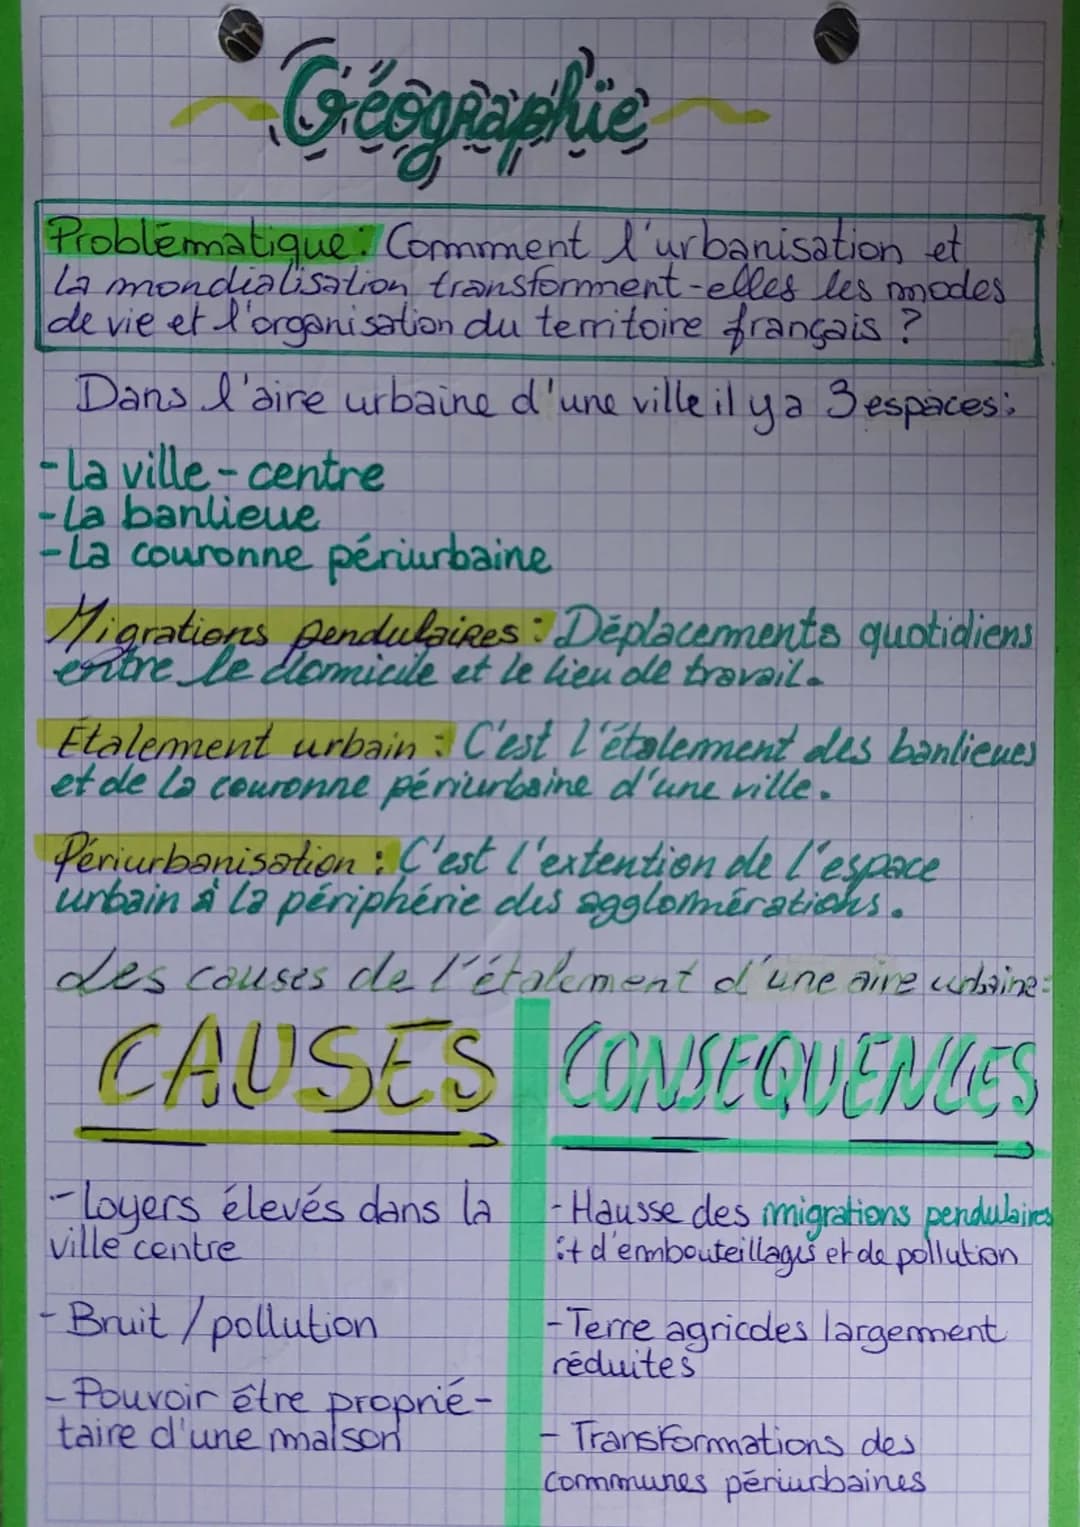 Géographie
Problématique : Comment l'urbanisation et
la mondialisation transforment-elles les modes
de vie et l'organisation du territoire français ?
Dans l'aire urbaine d'une ville il y a 3 espaces :
- La ville-centre
- La banlieue
- La couronne périurbaine
Migrations pendulaires : Déplacements quotidiens
entre le domicile et le lieu de travail.
Etalement urbain : C'est l'étalement des banlieues
et de la couronne périurbaine d'une ville.
Périurbanisation : C'est l'extention de l'espace
urbain à la périphérie des agglomérations.
Les causes de l'étalement d'une aire urbaine :
CAUSES
- Loyers élevés dans la
ville centre
- Bruit / pollution
- Pouvoir être proprié-
taire d'une maison
CONSEQUENCES
- Hausse des migrations pendulaires
:+ d'embouteillages et de pollution
- Terre agricoles largement
réduites
- Transformations des
communes périurbaines